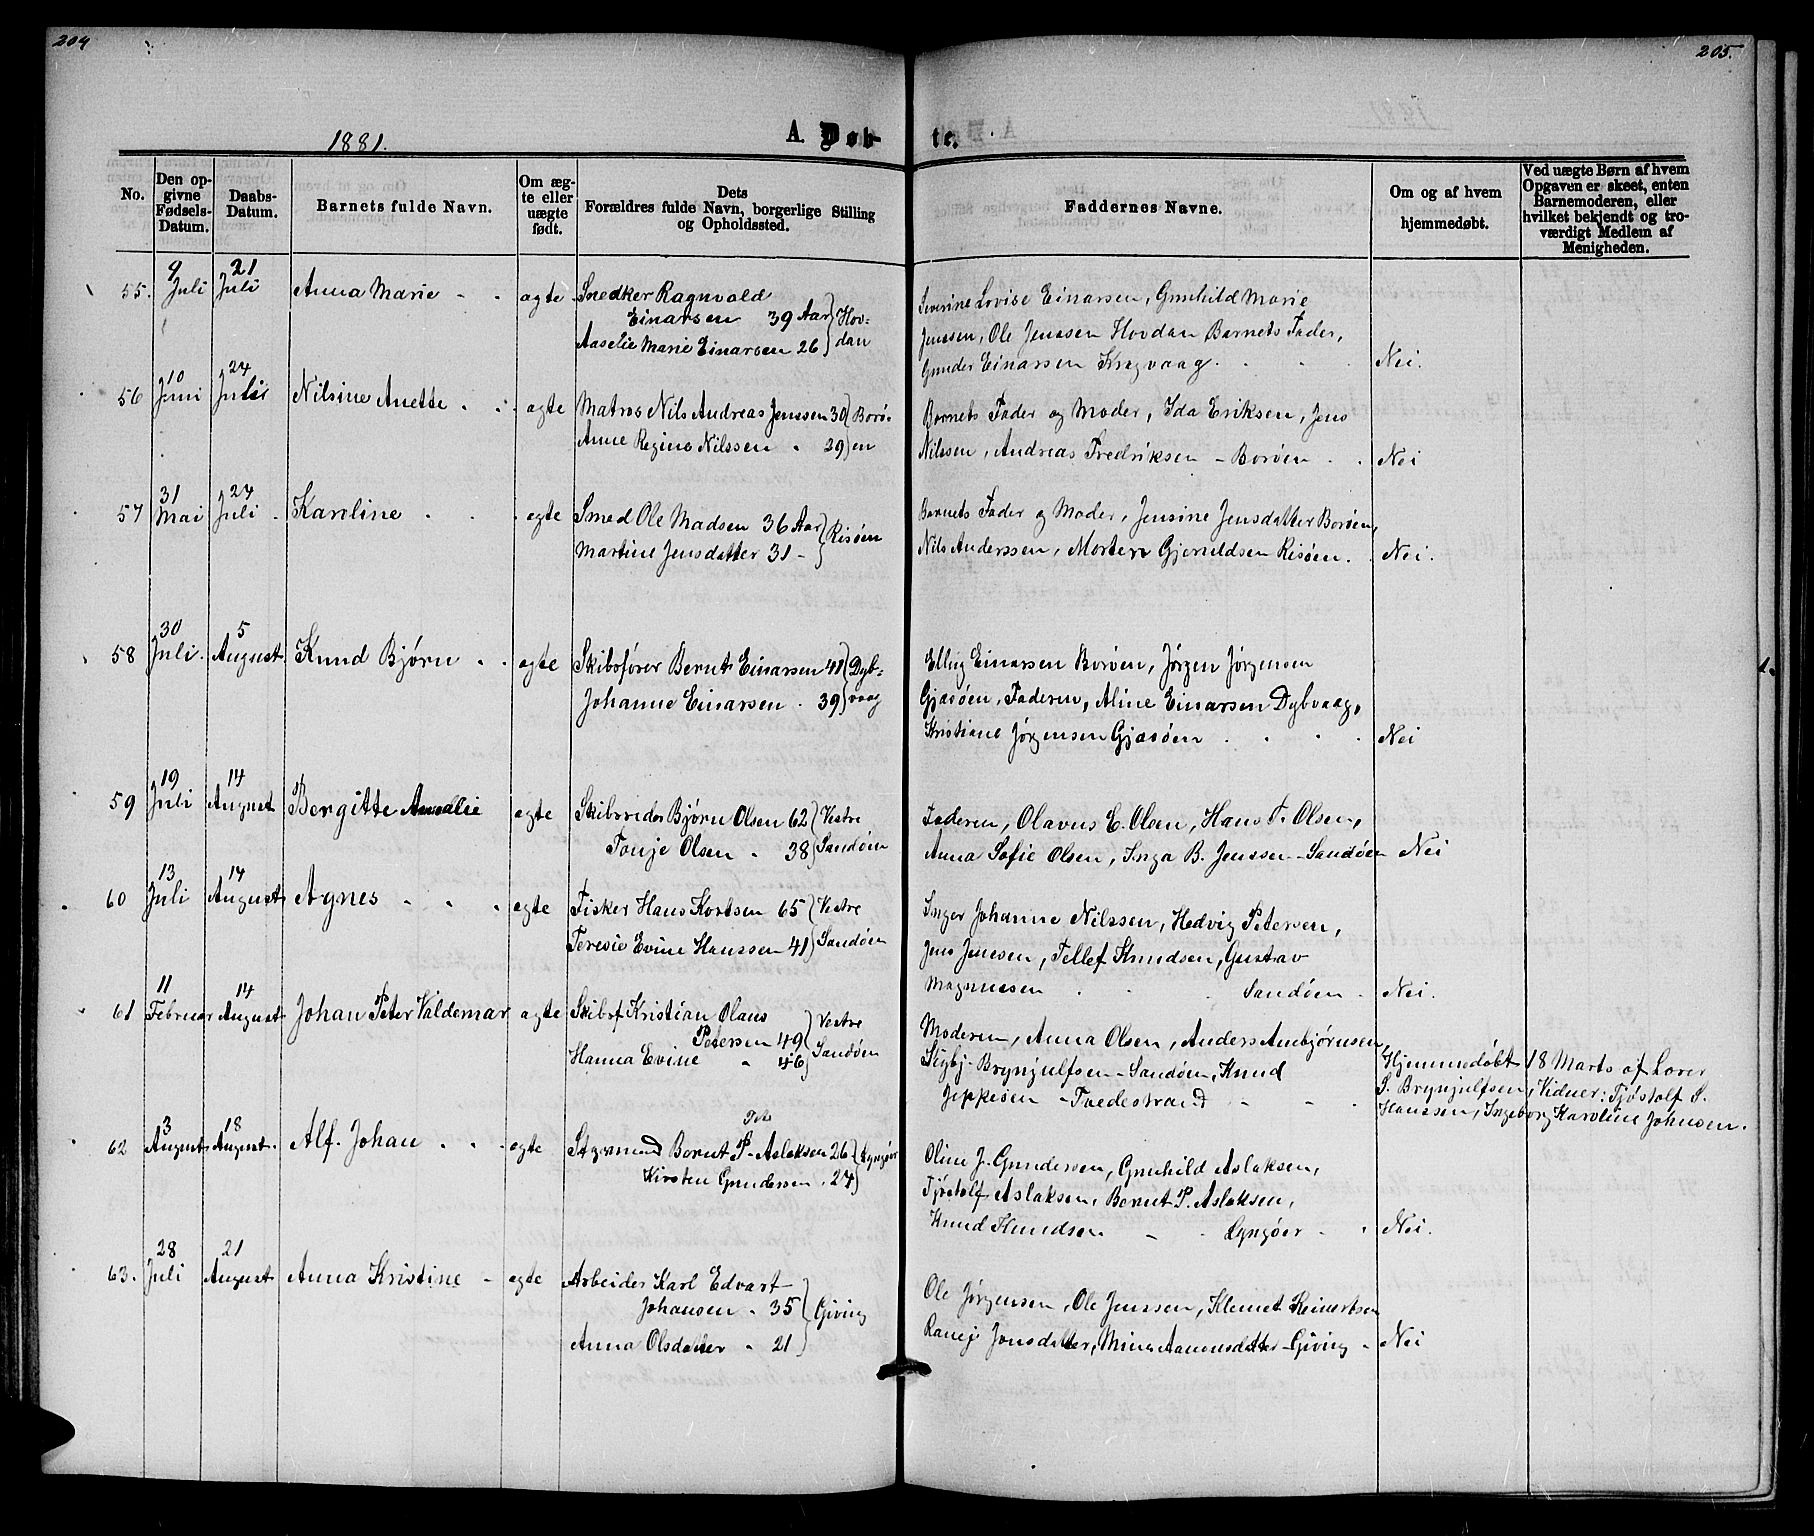 204
205.
1881.
A. Døb-
te.
No.
Den op-
givne
Fødsels-
Datum.
Daabs-
Datum.
Barnets fulde Navn.
Om æg-
te eller
uægte
født.
Dets
Forældres fulde Navn, borgerlige Stilling
og Opholdssted.
Faddernes Navne.
Om og af hvem
hjemmedøbt.
Ved uægte Børn af hvem
Opgaven er skeet, enten
Barnemoderen, eller
hvilket bekjendt og tro-
værdigt Medlem af
Menigheden.
55.
9
Juli
21
Juli
Anna Marie
ægte
Snedker Ragnvald
Einarsen 39 Aar
Aaselie Marie Einarsen 26
Hov-
dan
Severine Lovise Einarsen, Gunhild Marie
Jenssen, Ole Jenssen Hovdan Barnets Fader,
Gunder Einarsen Kragvaag.
Nei.
56
10
Juni
24
Juli
Nilsine Anette
ægte
Matros Nils Andreas Jenssen 30
Anne Regine Nilssen 39
Borø-
en
Barnets Fader og Moder, Ida Eriksen, Jens
Nilssen, Andreas Fredriksen - Borøen
Nei
57
31
Mai
24
Juli
Karoline
ægte
Smed Ole Madsen 36 Aar
Martine Jensdatter 31 -
Risøen
Barnets Fader og Moder, Jensine Jensdatter Borøen,
Nils Anderssen, Morten Gjeruldsen Risøen.
Nei.
58
30
Juli.
5
August
Knud Bjørn
ægte
Skibsfører Bernt Einarsen 41
Johanne Einarsen 39
Dyb-
vaag
Elling Einarsen Borøen, Jørgen Jørgensen
Gjæsøen, Faderen, Aline Einarsen Dybvaag,
Kristiane Jørgensen Gjæsøen
Nei
1.
59
19
Juli
14
August
Bergitte Amalie
ægte
Skibsreder Bjørn Olsen 62
Tonje Olsen 38
Vestre
Sandøen
Faderen, Olavus E. Olsen, Hans T. Olsen,
Anna Sofie Olsen, Inga B. Jenssen - Sandøen
Nei
60
13
Juli
14
August
Agnes
ægte
Fisker Hans Kortsen 65
Teresie Evine Hanssen 41
Vestre
Sandøen
Inger Johanne Nilssen, Hedvig Petersen,
Jens Jenssen, Tellef Knudsen, Gustav
Magnussen Sandøen
Nei.
61
11
Februar
14
August
Johan Peter Valdemar
ægte
Skibsf Kristian Olaus
Petersen 49
Hanna Evine " 46
Vestre
Sandøen
Moderen, Anna Olsen, Anders Anbjørnsen,
Brynjulfsen - Sandøen, Knud
Jeppesen - Tvedestrand
Hjemmedøbt 18 Marts af Lærer
S. Brynjulfsen, Vidner: Tjøstolf S.
Hanssen, Ingeborg Karoline Johnsen.
62
3
August
18
August.
Alf. Johan
ægte
Styrmand Bernt P. Aslaksen 26
Kirsten Gundersen 24
Lyngør
Oline J. Gundersen, Gunhild Aslaksen,
Tjøstolf Aslaksen, Bernt P. Aslaksen,
Knud Knudsen Lyngøer
Nei.
63.
28
Juli
21
August
Anna Kristine
ægte
Arbeider Karl Edvart
Johansen 35
Anna Olsdatter 21
Giving
Ole Jørgensen, Ole Jenssen, Klemet Reinertsen
Jonsdatter, Mina Aanonsdatter - Giving
Nei